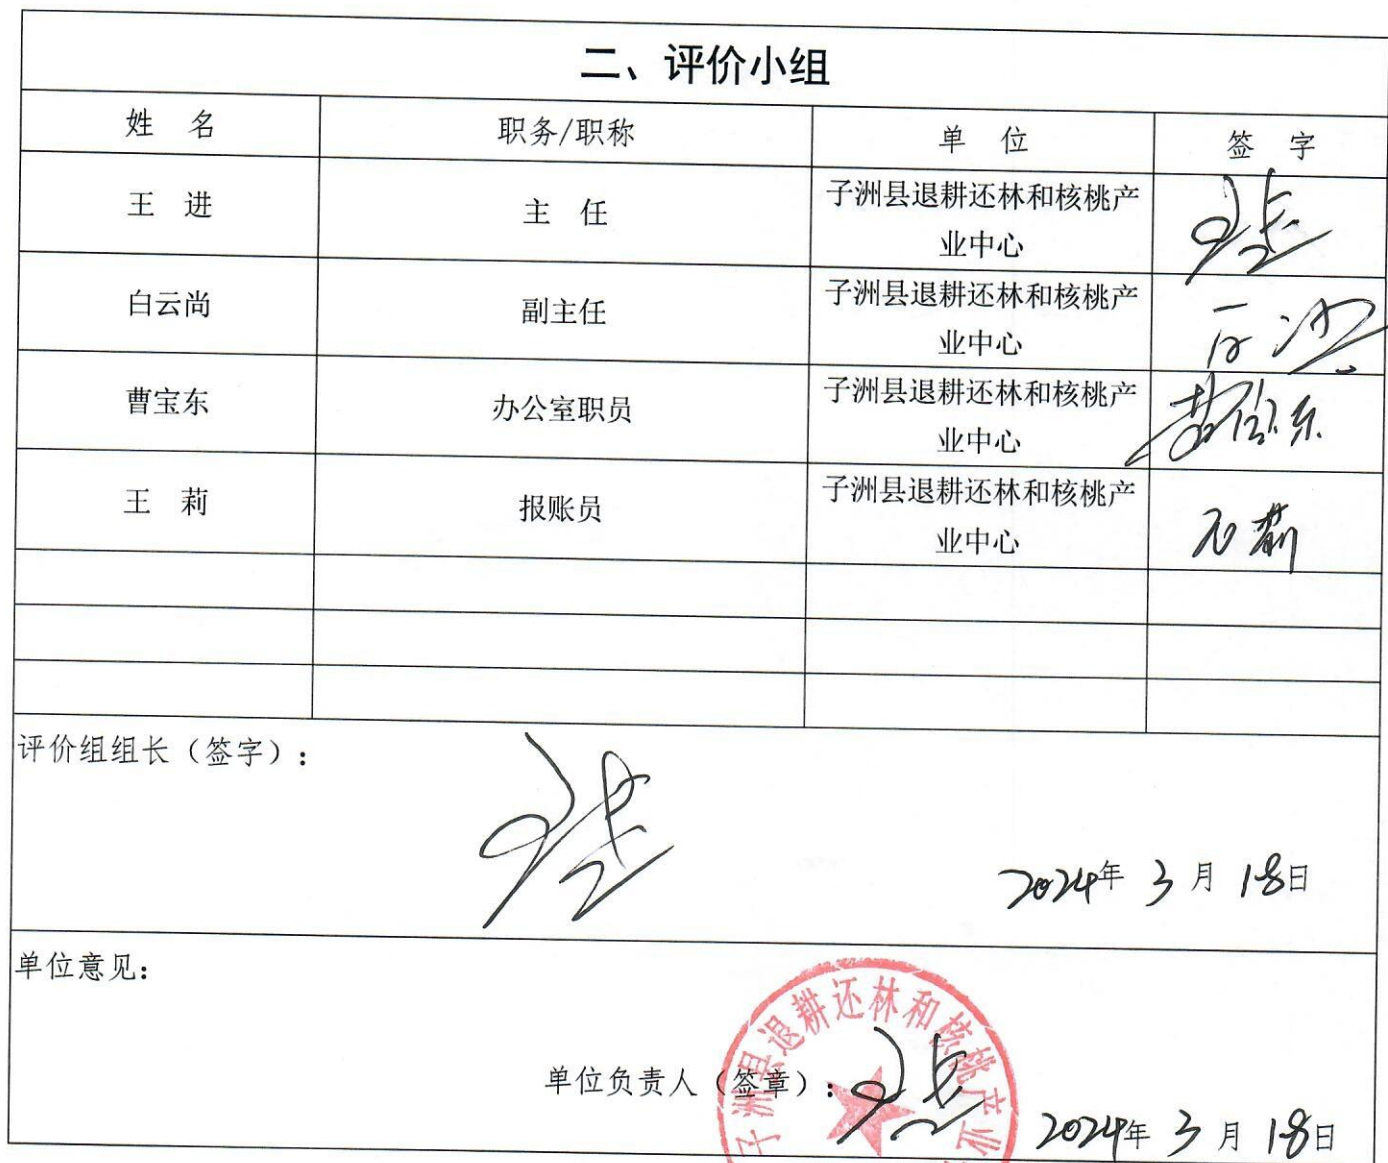 二、评价小组
姓 名 职务/职称 单 位 签 字
王 进 主 任 子洲县退耕还林和核桃产
业中心
白云尚 副主任 子洲县退耕还林和核桃产
业中心
曹宝东 办公室职员 子洲县退耕还林和核桃产
业中心 曹宝东
王 莉 报账员 子洲县退耕还林和核桃产
业中心 王莉
评价组组长（签字）：
2024年 3 月 18日
单位意见：
子洲县退耕还林和核桃产业
单位负责人（签章）：
2024年 3 月 18日